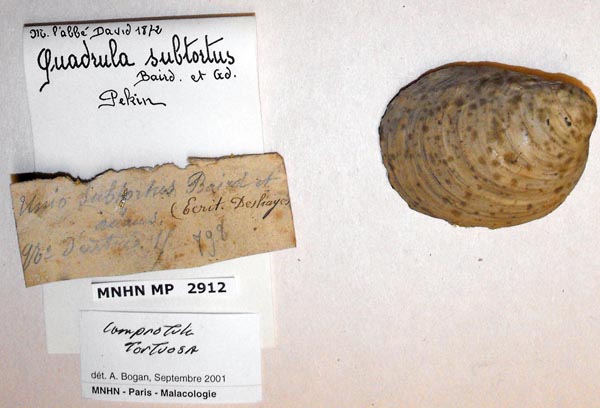 M. l'abbé David 1872
Quadrula subtortus
Baird. et Ad.
Pekin
Unio subtortus Baird et
(Ecrit. Deshayes
MNHN MP 2912
Lamprotula
tortuosa
dét. A. Bogan, Septembre 2001
MNHN - Paris - Malacologie